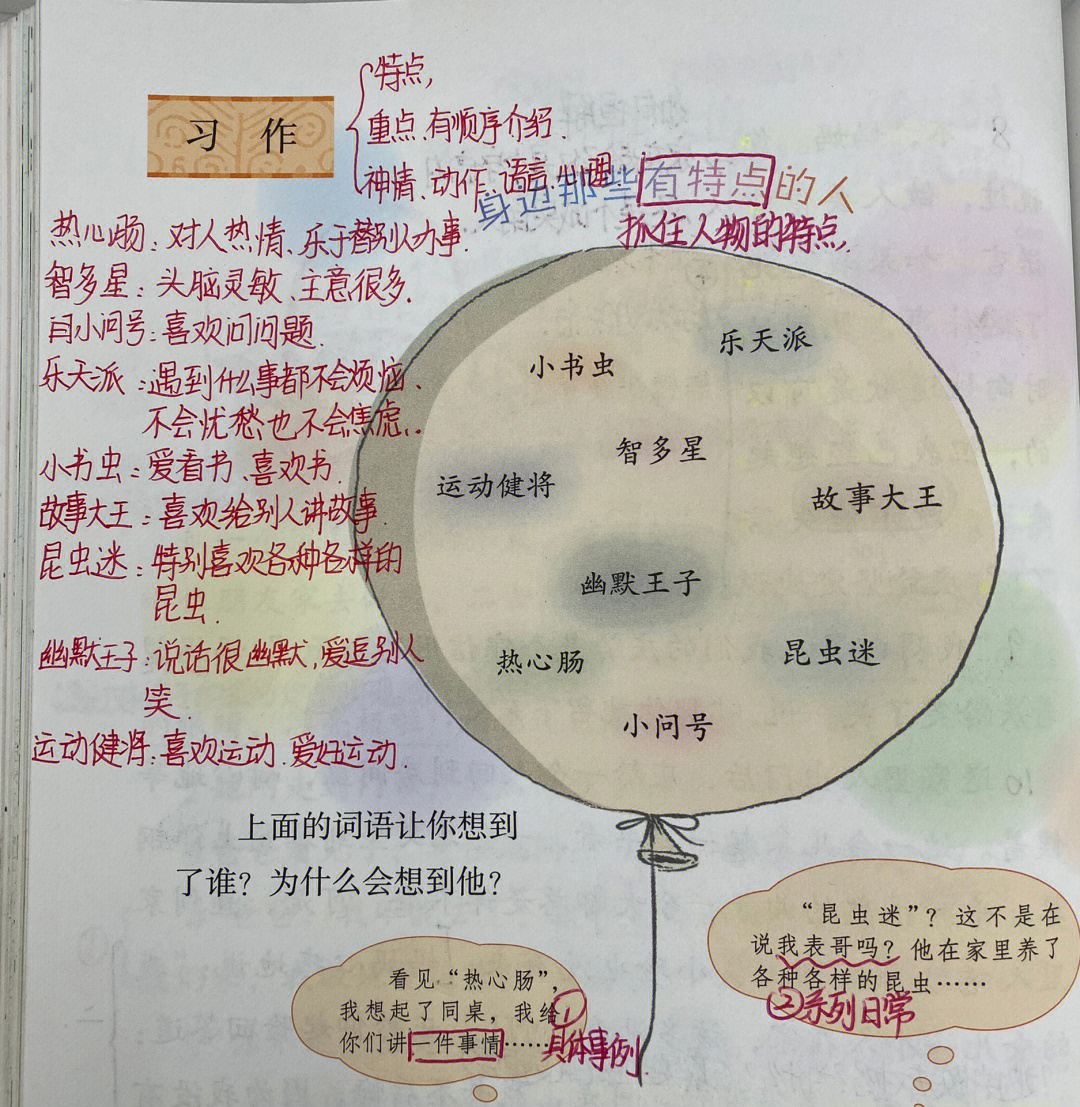 特点,
习 作
重点.有顺序介绍.
神情、动作、语言、心理
身边那些有特点的人
抓住人物的特点.
热心肠：对人热情、乐于替别人办事.
智多星：头脑灵敏、主意很多.
小问号：喜欢问问题.
乐天派：遇到什么事都不会烦恼、
不会忧愁、也不会焦虑.
小书虫：爱看书、喜欢书.
故事大王：喜欢给别人讲故事.
昆虫迷：特别喜欢各种各样的
昆虫.
幽默王子：说话很幽默,爱逗别人
笑.
运动健将：喜欢运动.爱好运动.
乐天派
小书虫
智多星
运动健将
故事大王
幽默王子
热心肠
昆虫迷
小问号
上面的词语让你想到
了谁？为什么会想到他？
看见“热心肠”，
我想起了同桌，我给
你们讲一件事情……
①具体事例.
“昆虫迷”？这不是在
说我表哥吗？他在家里养了
各种各样的昆虫……
②系列日常